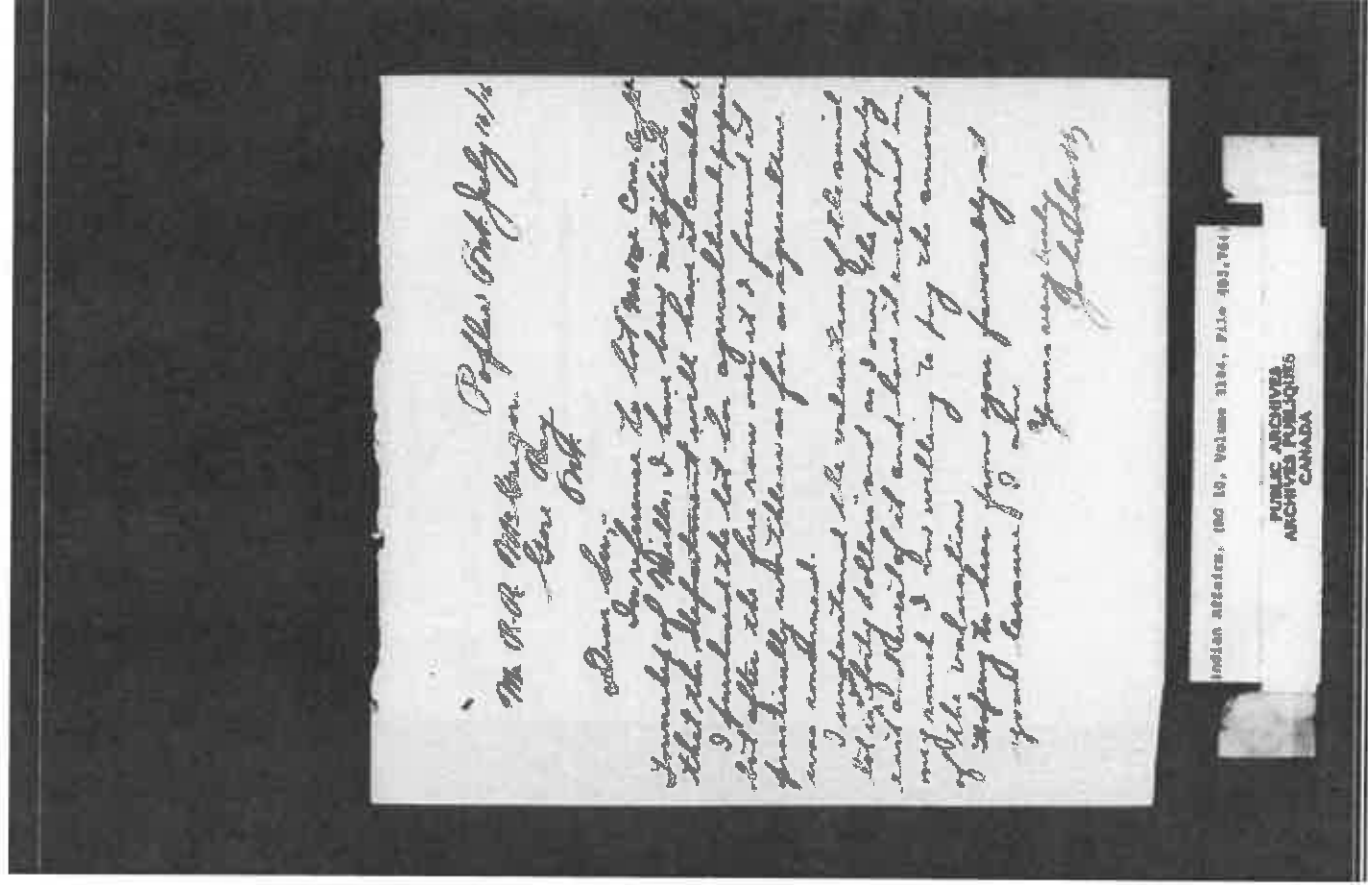 Ont. July
Mr R. R. McGregor
Gore Bay
Ont.
Dear Sir;
In reference to lot
Township of Mills, I have been notified
that the Department will have it cancelled
I purchased the lot for agricultural
but after the fire ran over it I found it
practically worthless as far as agriculture
was concerned.
I understand the valuation of the
lot is forty dollars and as I own the property
and have it
my ranch I am willing to pay the amount
of the valuation
Hoping to hear from you favorably at
your I am
Yours very truly
Indian Affairs, (RG 10, Volume 3104, File
PUBLIC ARCHIVES
ARCHIVES PUBLIQUES
CANADA